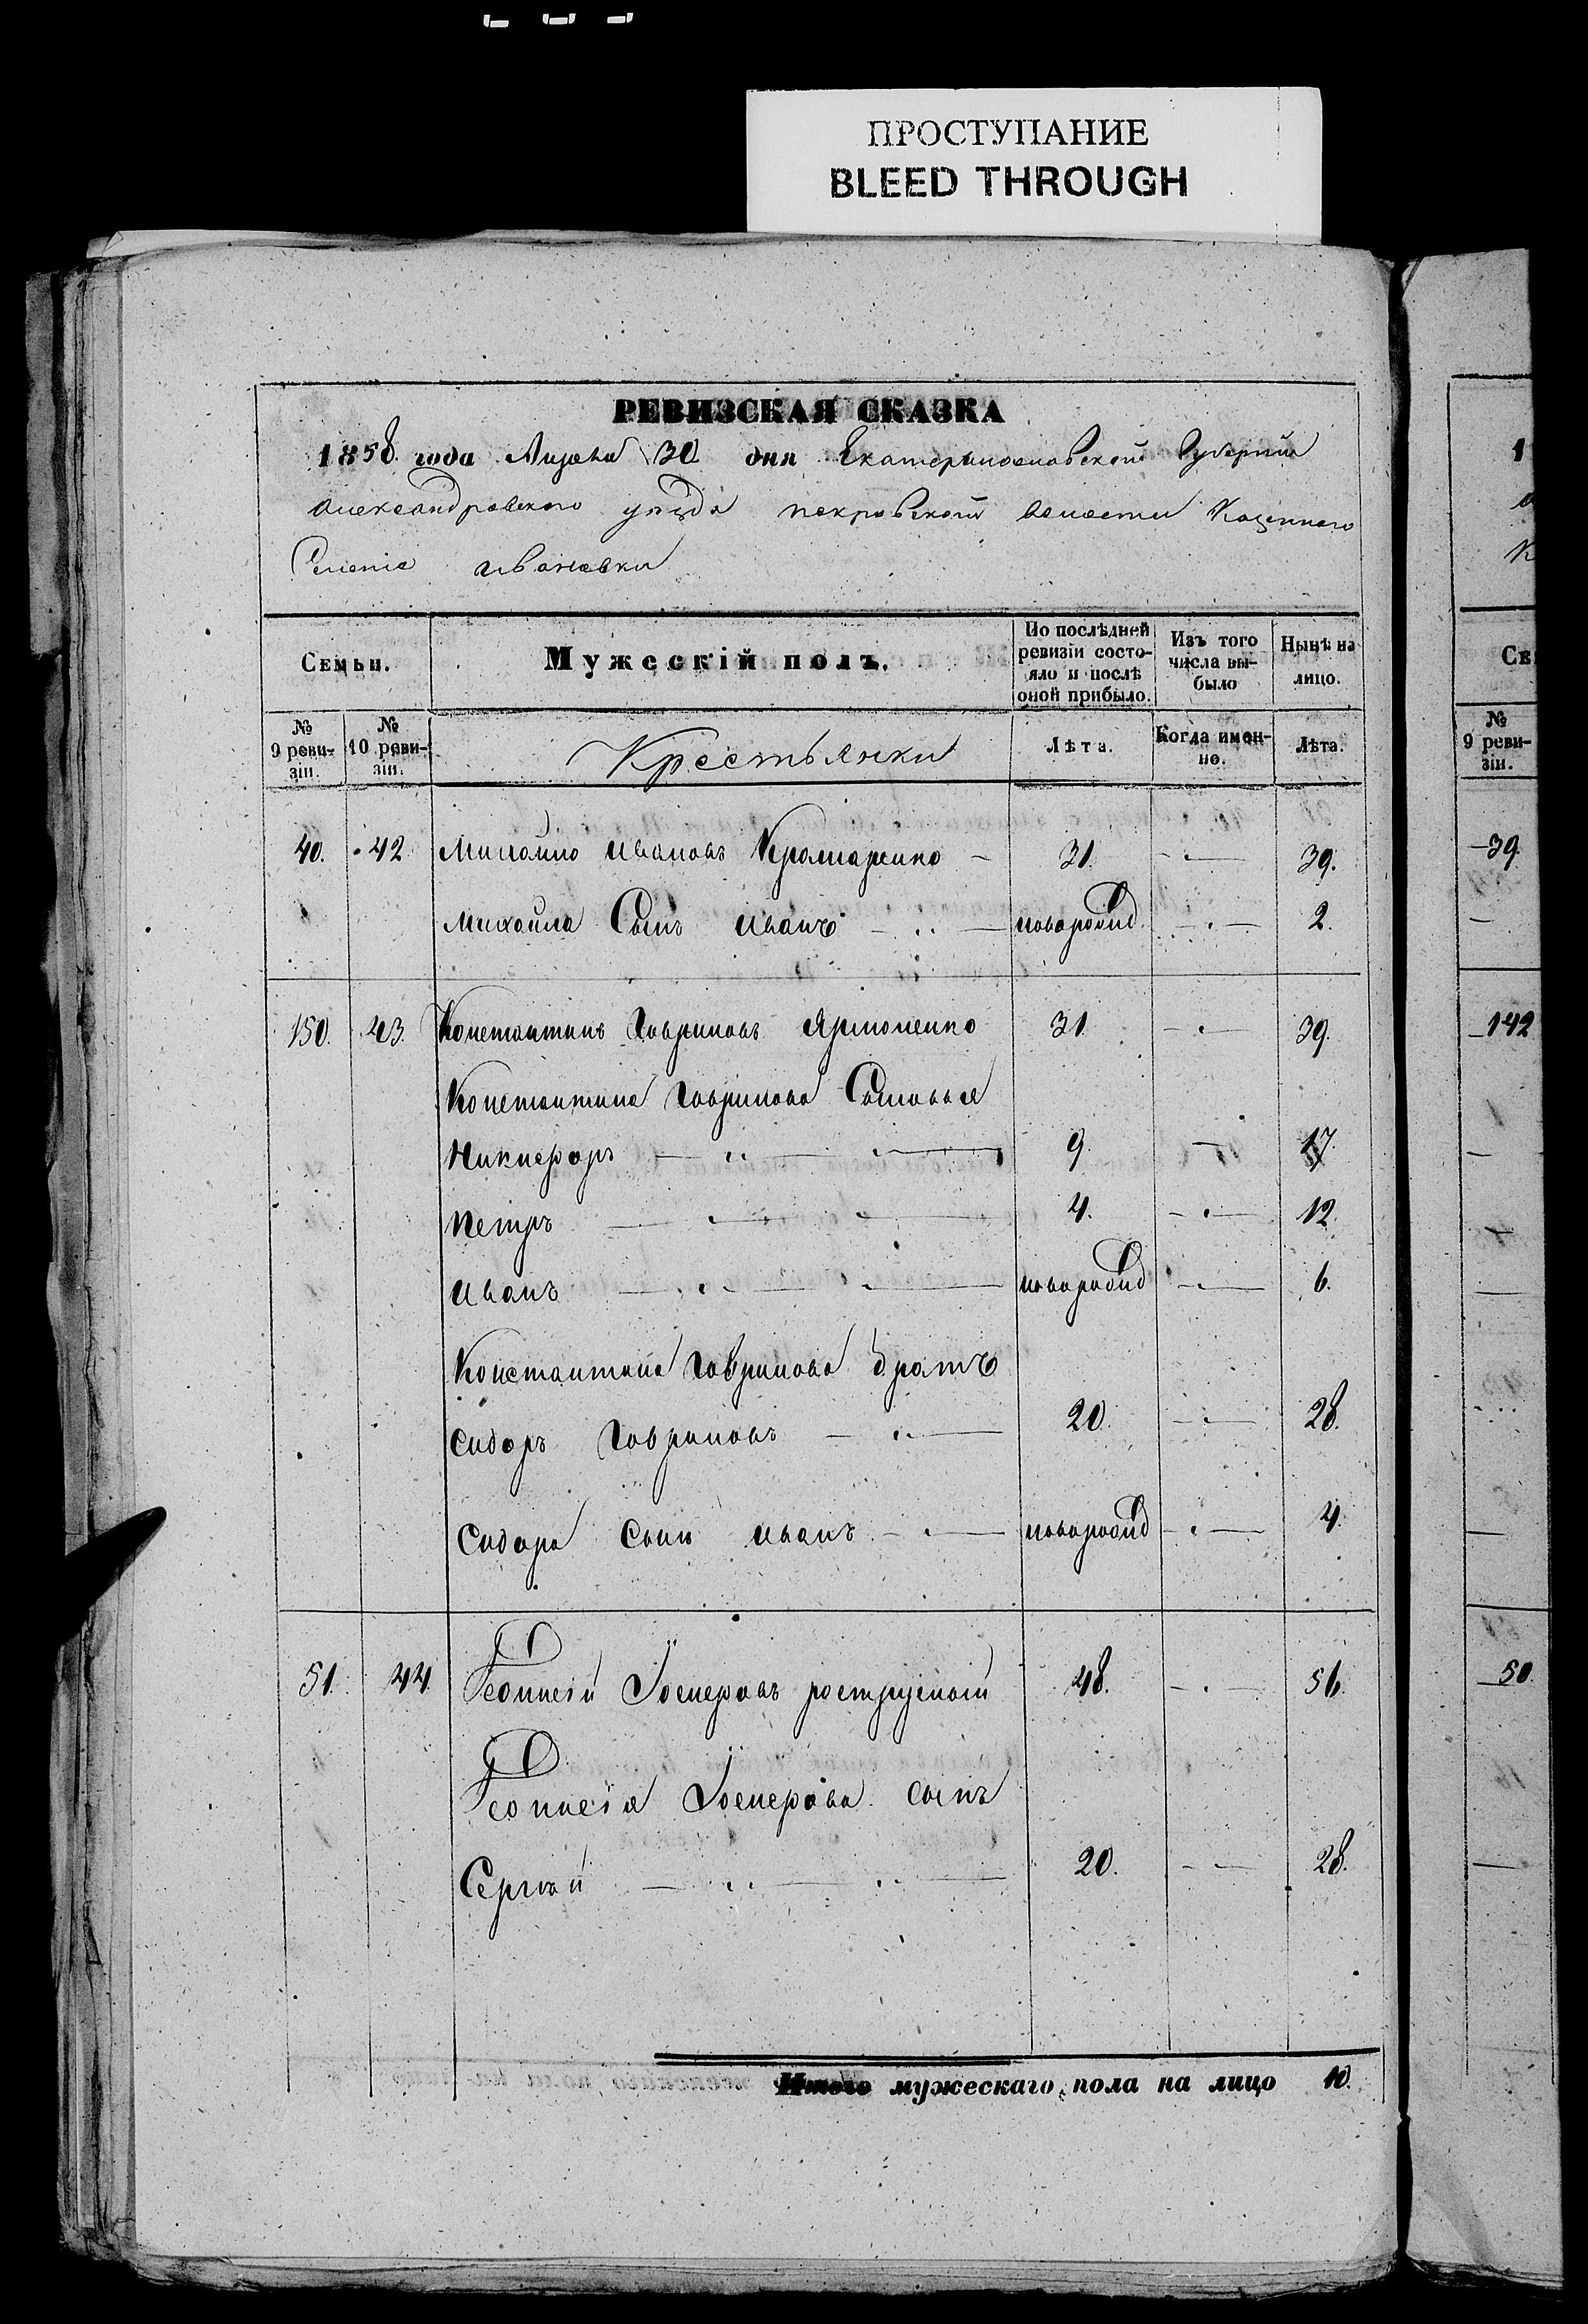 ПРОСТУПАНИЕ
BLEED THROUGH
РЕВИЗСКАЯ СКАЗКА
1858 года 30 дня Екатеринославской Губерніи
Александровского уѣзда покровской волости Казенного
Селенія Ивановки
Семьи. Мужескій полъ. По послѣдней ревизіи состояло и послѣ оной прибыло. Изъ того числа выбыло Нынѣ на лицо.
№ 9 ревизіи. № 10 ревизіи. Крестьянки Лѣта. Когда именно. Лѣта.
40. 42 Михайло Ивановъ Крамаренко 31. 39.
Михайла Сынъ Иванъ новорожд. 2.
150. 43. Константинъ Гавриловъ Ярмоленко 31. 39.
Константина Гаврилова Сыновья
Никифоръ 9. 17.
Петръ 4. 12.
Иванъ новорожд 6.
Константина Гаврилова братъ
Сидоръ Гавриловъ 20. 28.
Сидора Сынъ Иванъ новорожд 4.
51. 44. 48. 56.
сынъ
Сергѣй 20. 28.
Итого мужескаго пола на лицо 10.
1
К
СЕ
№ 9 ревизіи.
39.
142
50.